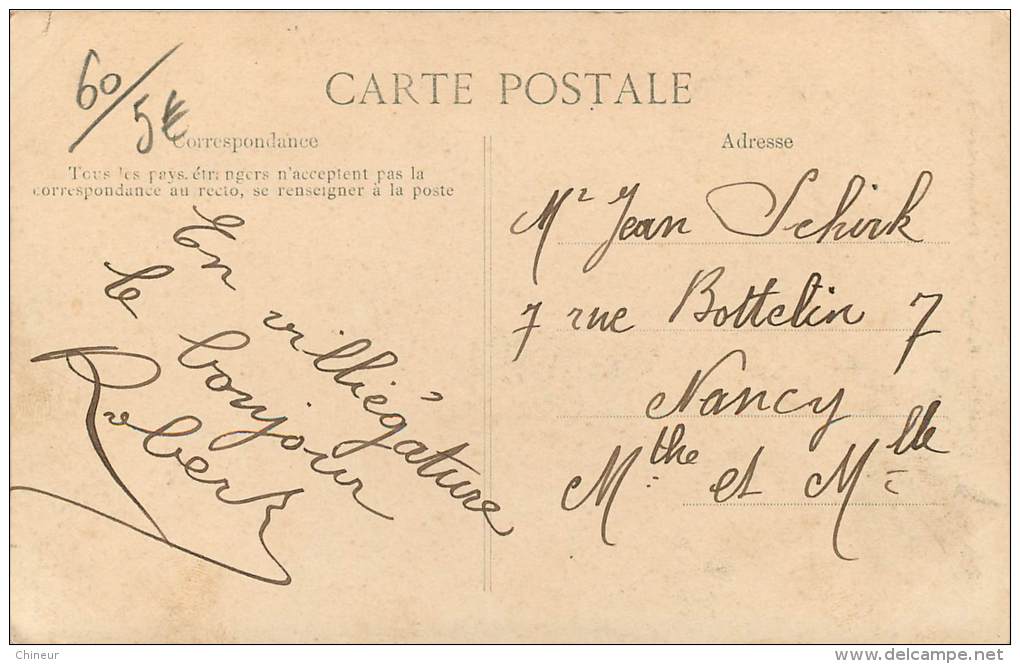 60/5€
CARTE POSTALE
Correspondance
Tous les pays étrangers n'acceptent pas la
correspondance au recto, se renseigner à la poste
En villiégature
le bonjour
Robert
Adresse
Mr Jean Schirk
7 rue Bottelin 7
Nancy
Mthe et Mlle
Chineur
www.delcampe.net